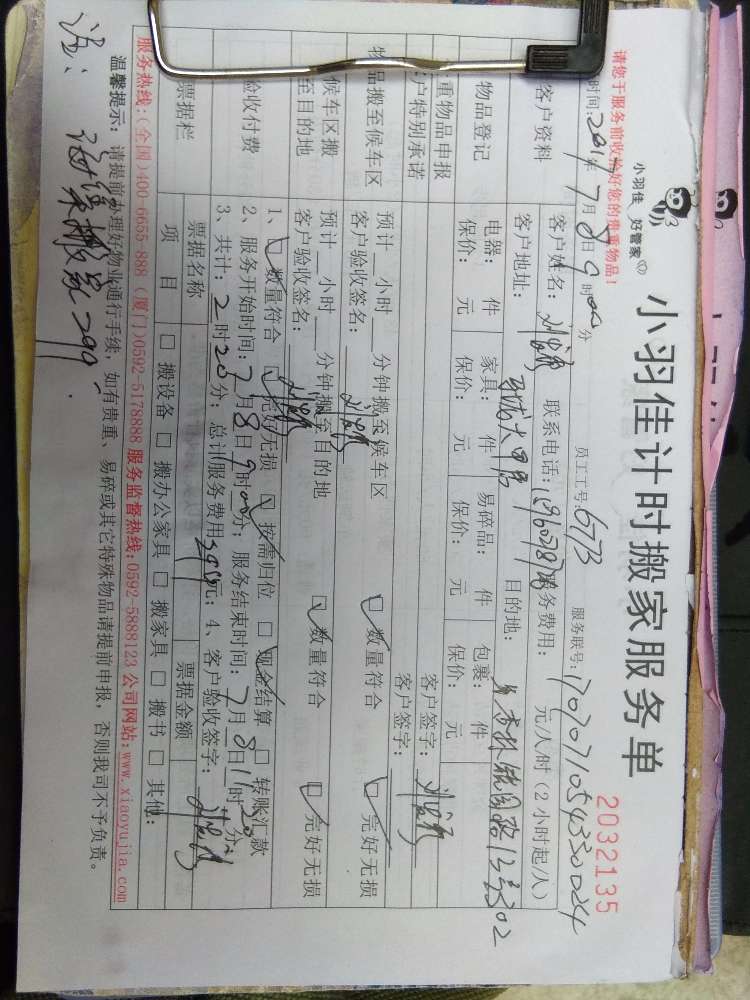 小羽佳 好管家
小羽佳计时搬家服务单
2032135
请您于服务前收拾好您的贵重物品!
时间: 2017年7月8日9时00分 员工工号: 6773 服务联号: 170707105433
客户资料 客户姓名: 联系电话: 服务费用: 元/人/时 (2小时起/人)
客户地址: 目的地:
物品登记 电器: 件 家具: 件 易碎品: 件 包裹: 件
保价: 元 保价: 元 保价: 元 保价: 元
重物品申报 客户签字:
户特别承诺 客户签字:
物品搬至候车区 预计__小时__分钟搬至候车区 数量符合 完好无损
客户验收签名:
候车区搬至目的地 预计__小时__分钟搬至目的地 数量符合 完好无损
客户验收签名:
验收付费 1、 数量符合 完好无损 按需归位 现金结算 转账汇款
2、服务开始时间: 7月8日9时00分; 服务结束时间: 7月8日11时20分
3、共计: 2时20分; 总计服务费用299元; 4、客户验收签字:
票据栏 票据名称 票据金额
项目 搬设备 搬办公家具 搬家具 搬书 其他:
服务热线:(全国)400-6655-888 (厦门)0592-5178888 服务监督热线:0592-5888123 公司网站:www.xiaoyujia.com
温馨提示: 请提前办理好物业通行手续, 如有贵重、易碎或其它特殊物品请提前申报, 否则我司不予负责。
注: 搬家299.